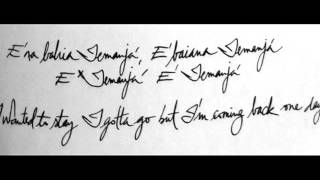 E'na bahia Iemanjá, E'baiana Iemanjá
E* Iemanjá, E' Iemanjá
Wanted to stay I gotta go but I'm coming back one day